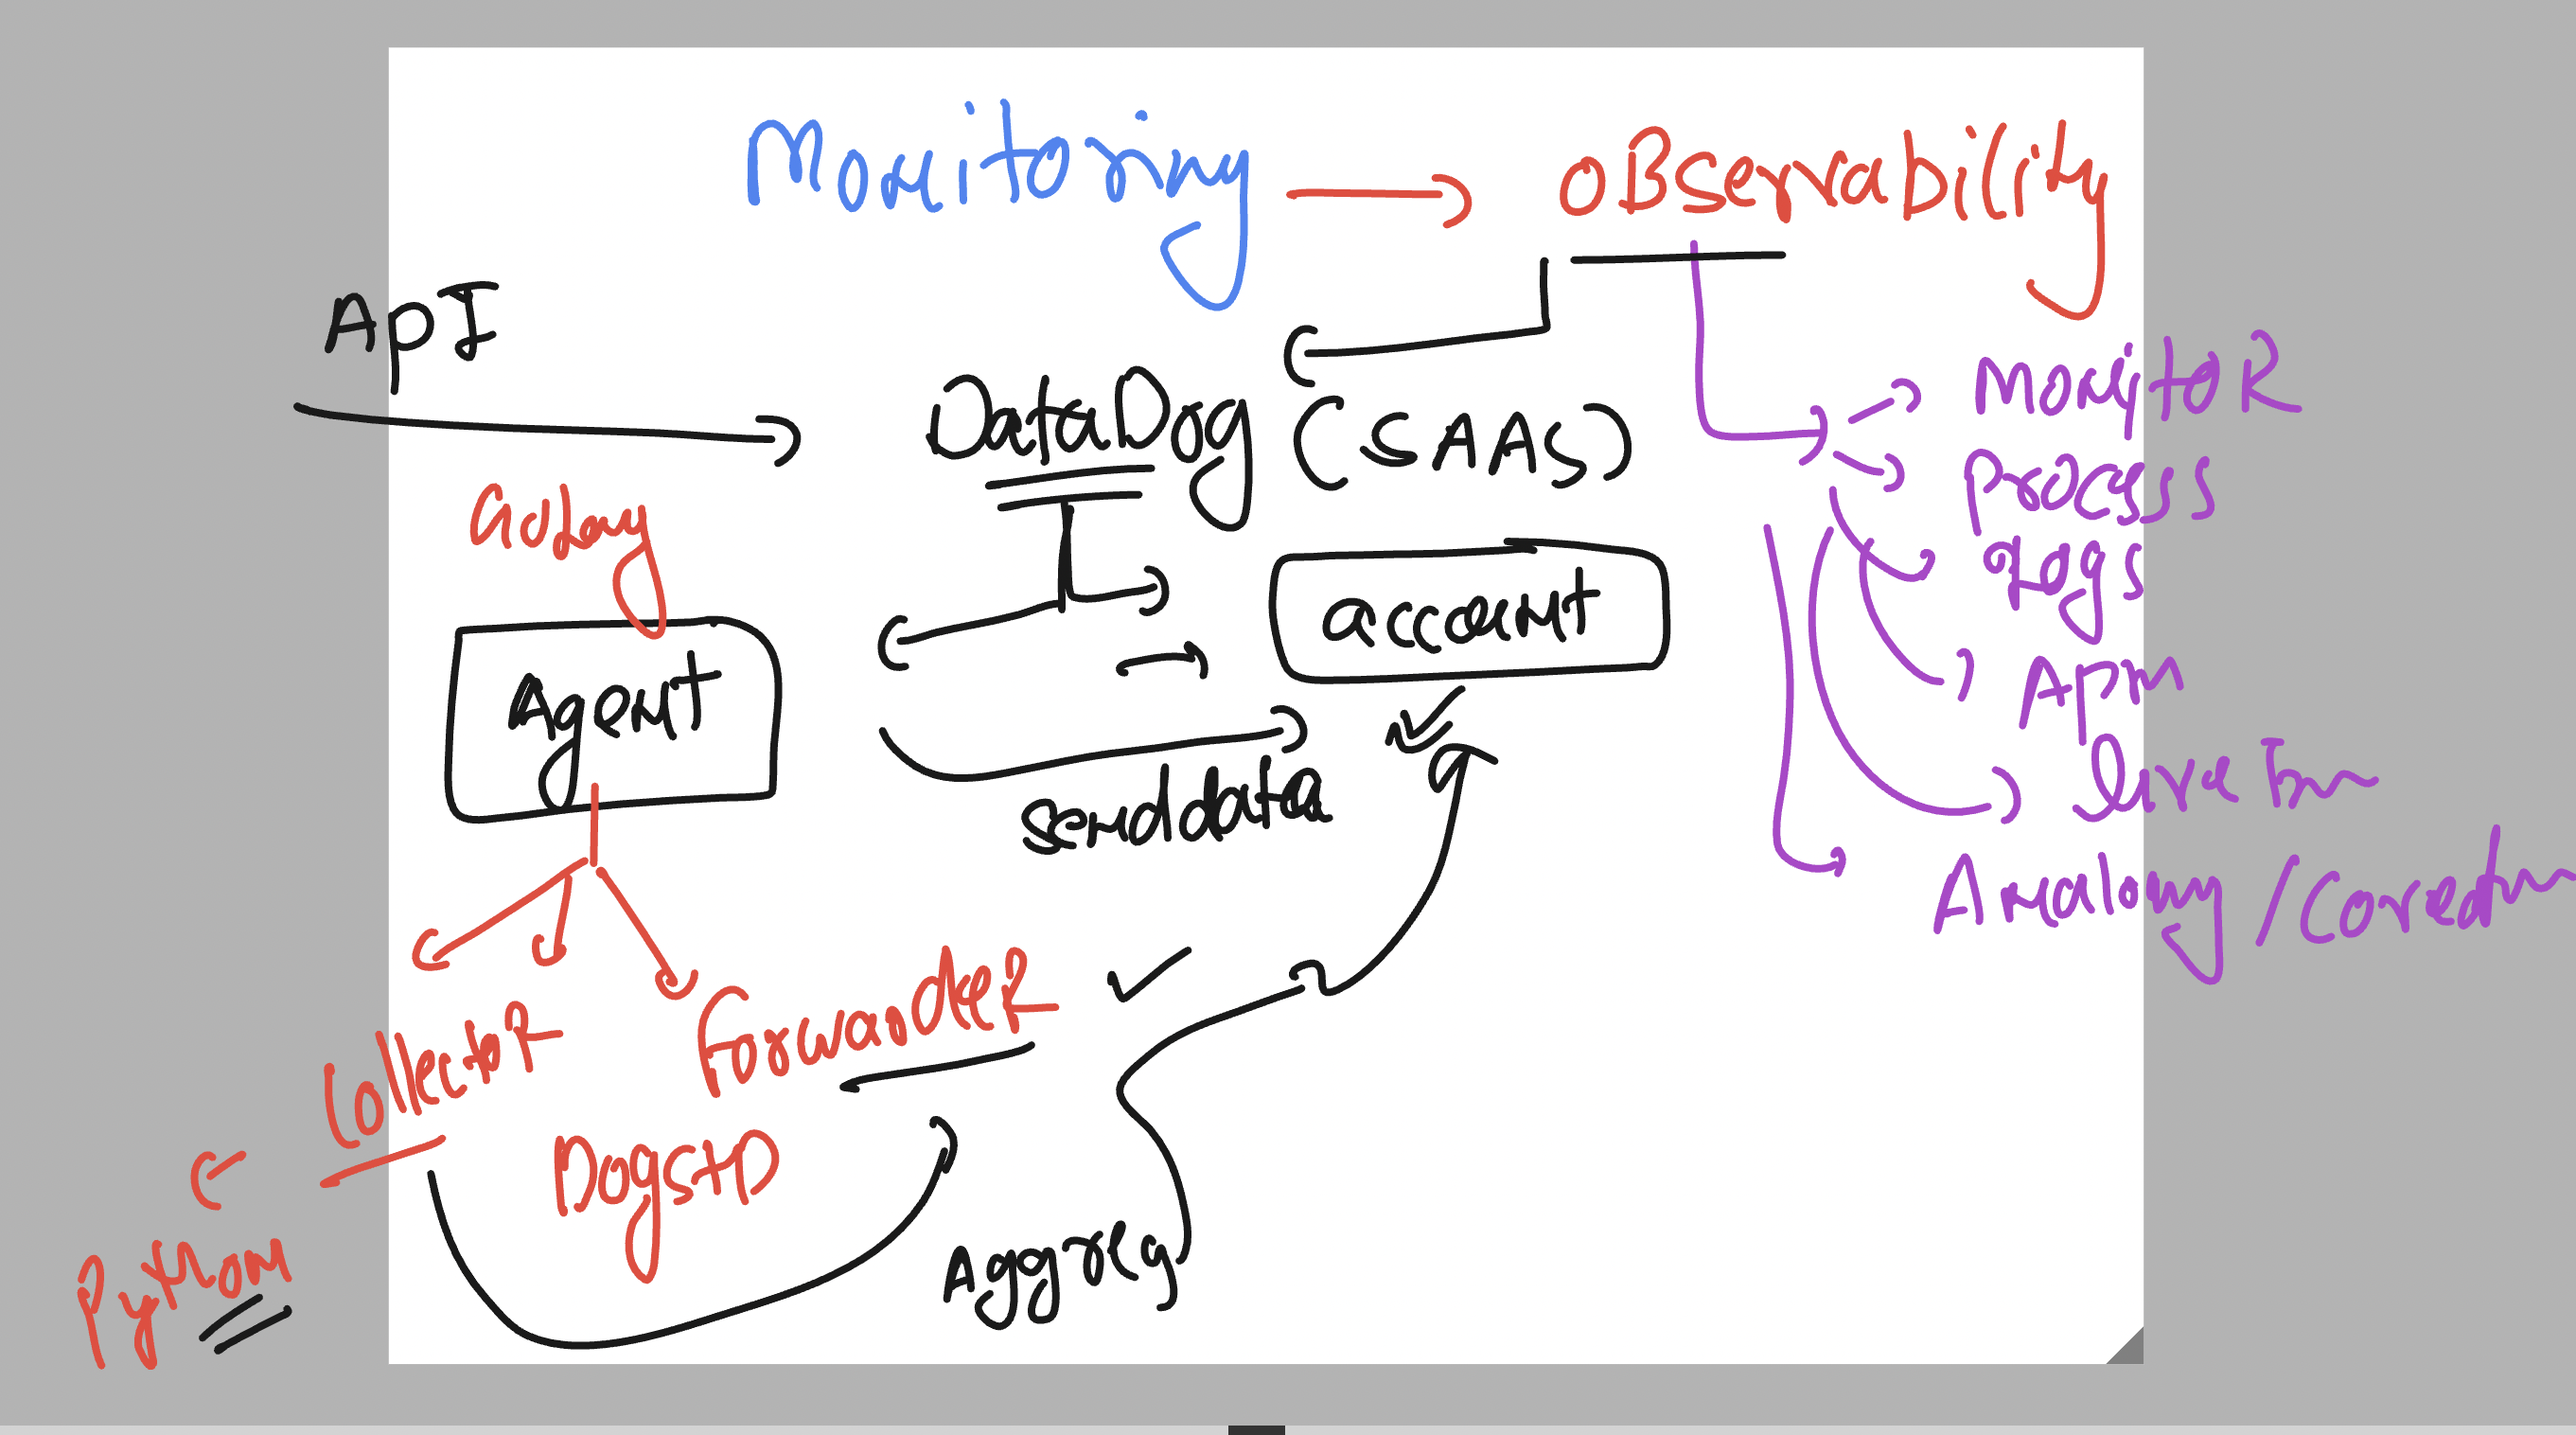 Monitoring → oBservability
ApI
DataDog (SAAS)
MonitoR
Process
Logs
Apm
Golang
account
Agent
send data
CollectoR
ForwardeR
DogstD
Python
Aggreg